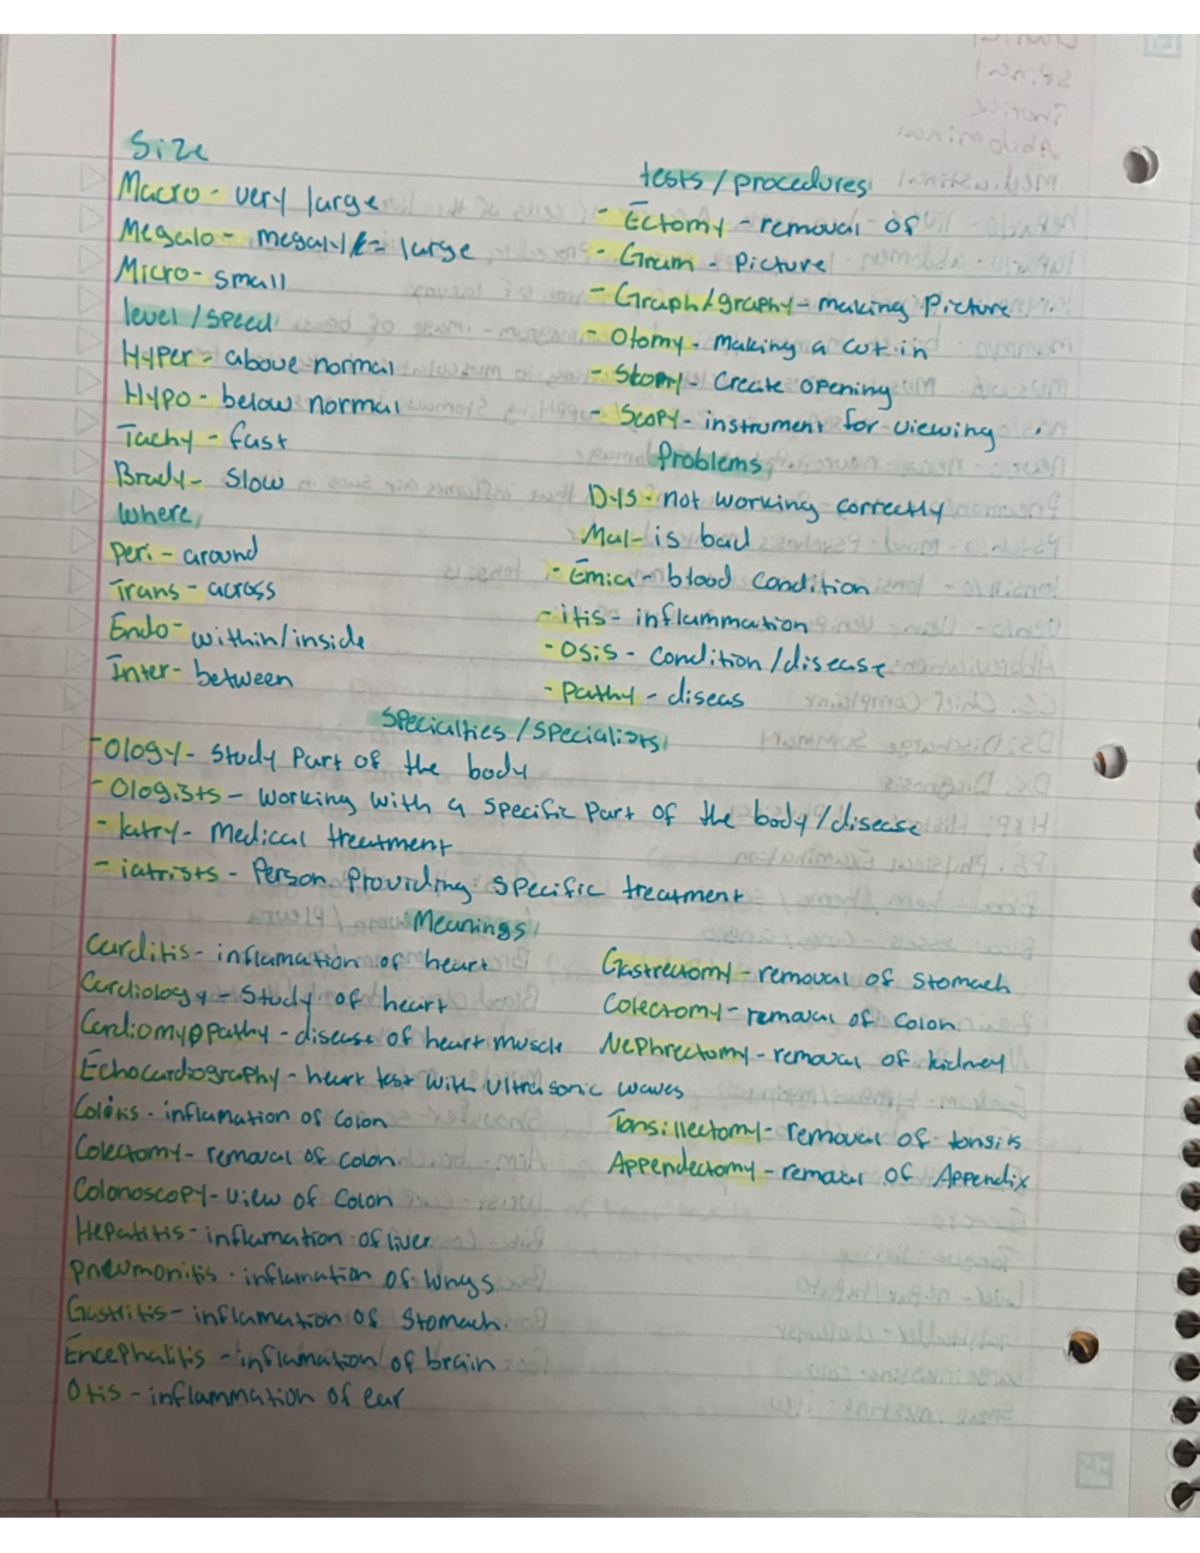 Size
Macro - very large
Megalo - megaly/k = large
Micro - small
level/speed
Hyper - above normal
Hypo - below normal
Tachy - fast
Brady - Slow
Where
Peri - around
Trans - across
Endo - within/inside
Inter - between
tests/procedures
- Ectomy - removal of
- Gram - Picture
- Graph/graphy - making Picture
- Otomy - Making a cut in
- Stomy - Create opening
- Scopy - instrument for viewing
Problems
Dys - not working correctly
Mal - is bad
- Emia - blood condition
- itis - inflammation
- Osis - condition/disease
- pathy - diseas
Specialties/Specialists
- Ology - Study Part of the body
- Ologists - working with a specific part of the body/disease
- Iatry - Medical treatment
- iatrists - Person Providing specific treatment
Meanings
Carditis - inflamation of heart
Cardiology - Study of heart
Cardiomyopathy - disease of heart muscle
Echocardiography - heart test with ultrasonic waves
Colitis - inflamation of Colon
Colectomy - removal of colon
Colonoscopy - view of Colon
Hepatitis - inflamation of liver
Pneumonitis - inflamation of lungs
Gastritis - inflamation of Stomach.
Encephalitis - inflamation of brain
Otis - inflammation of ear
Gastrectomy - removal of Stomach
Colectomy - removal of Colon
Nephrectomy - removal of kidney
Tonsillectomy - removal of tonsils
Appendectomy - removal of Appendix